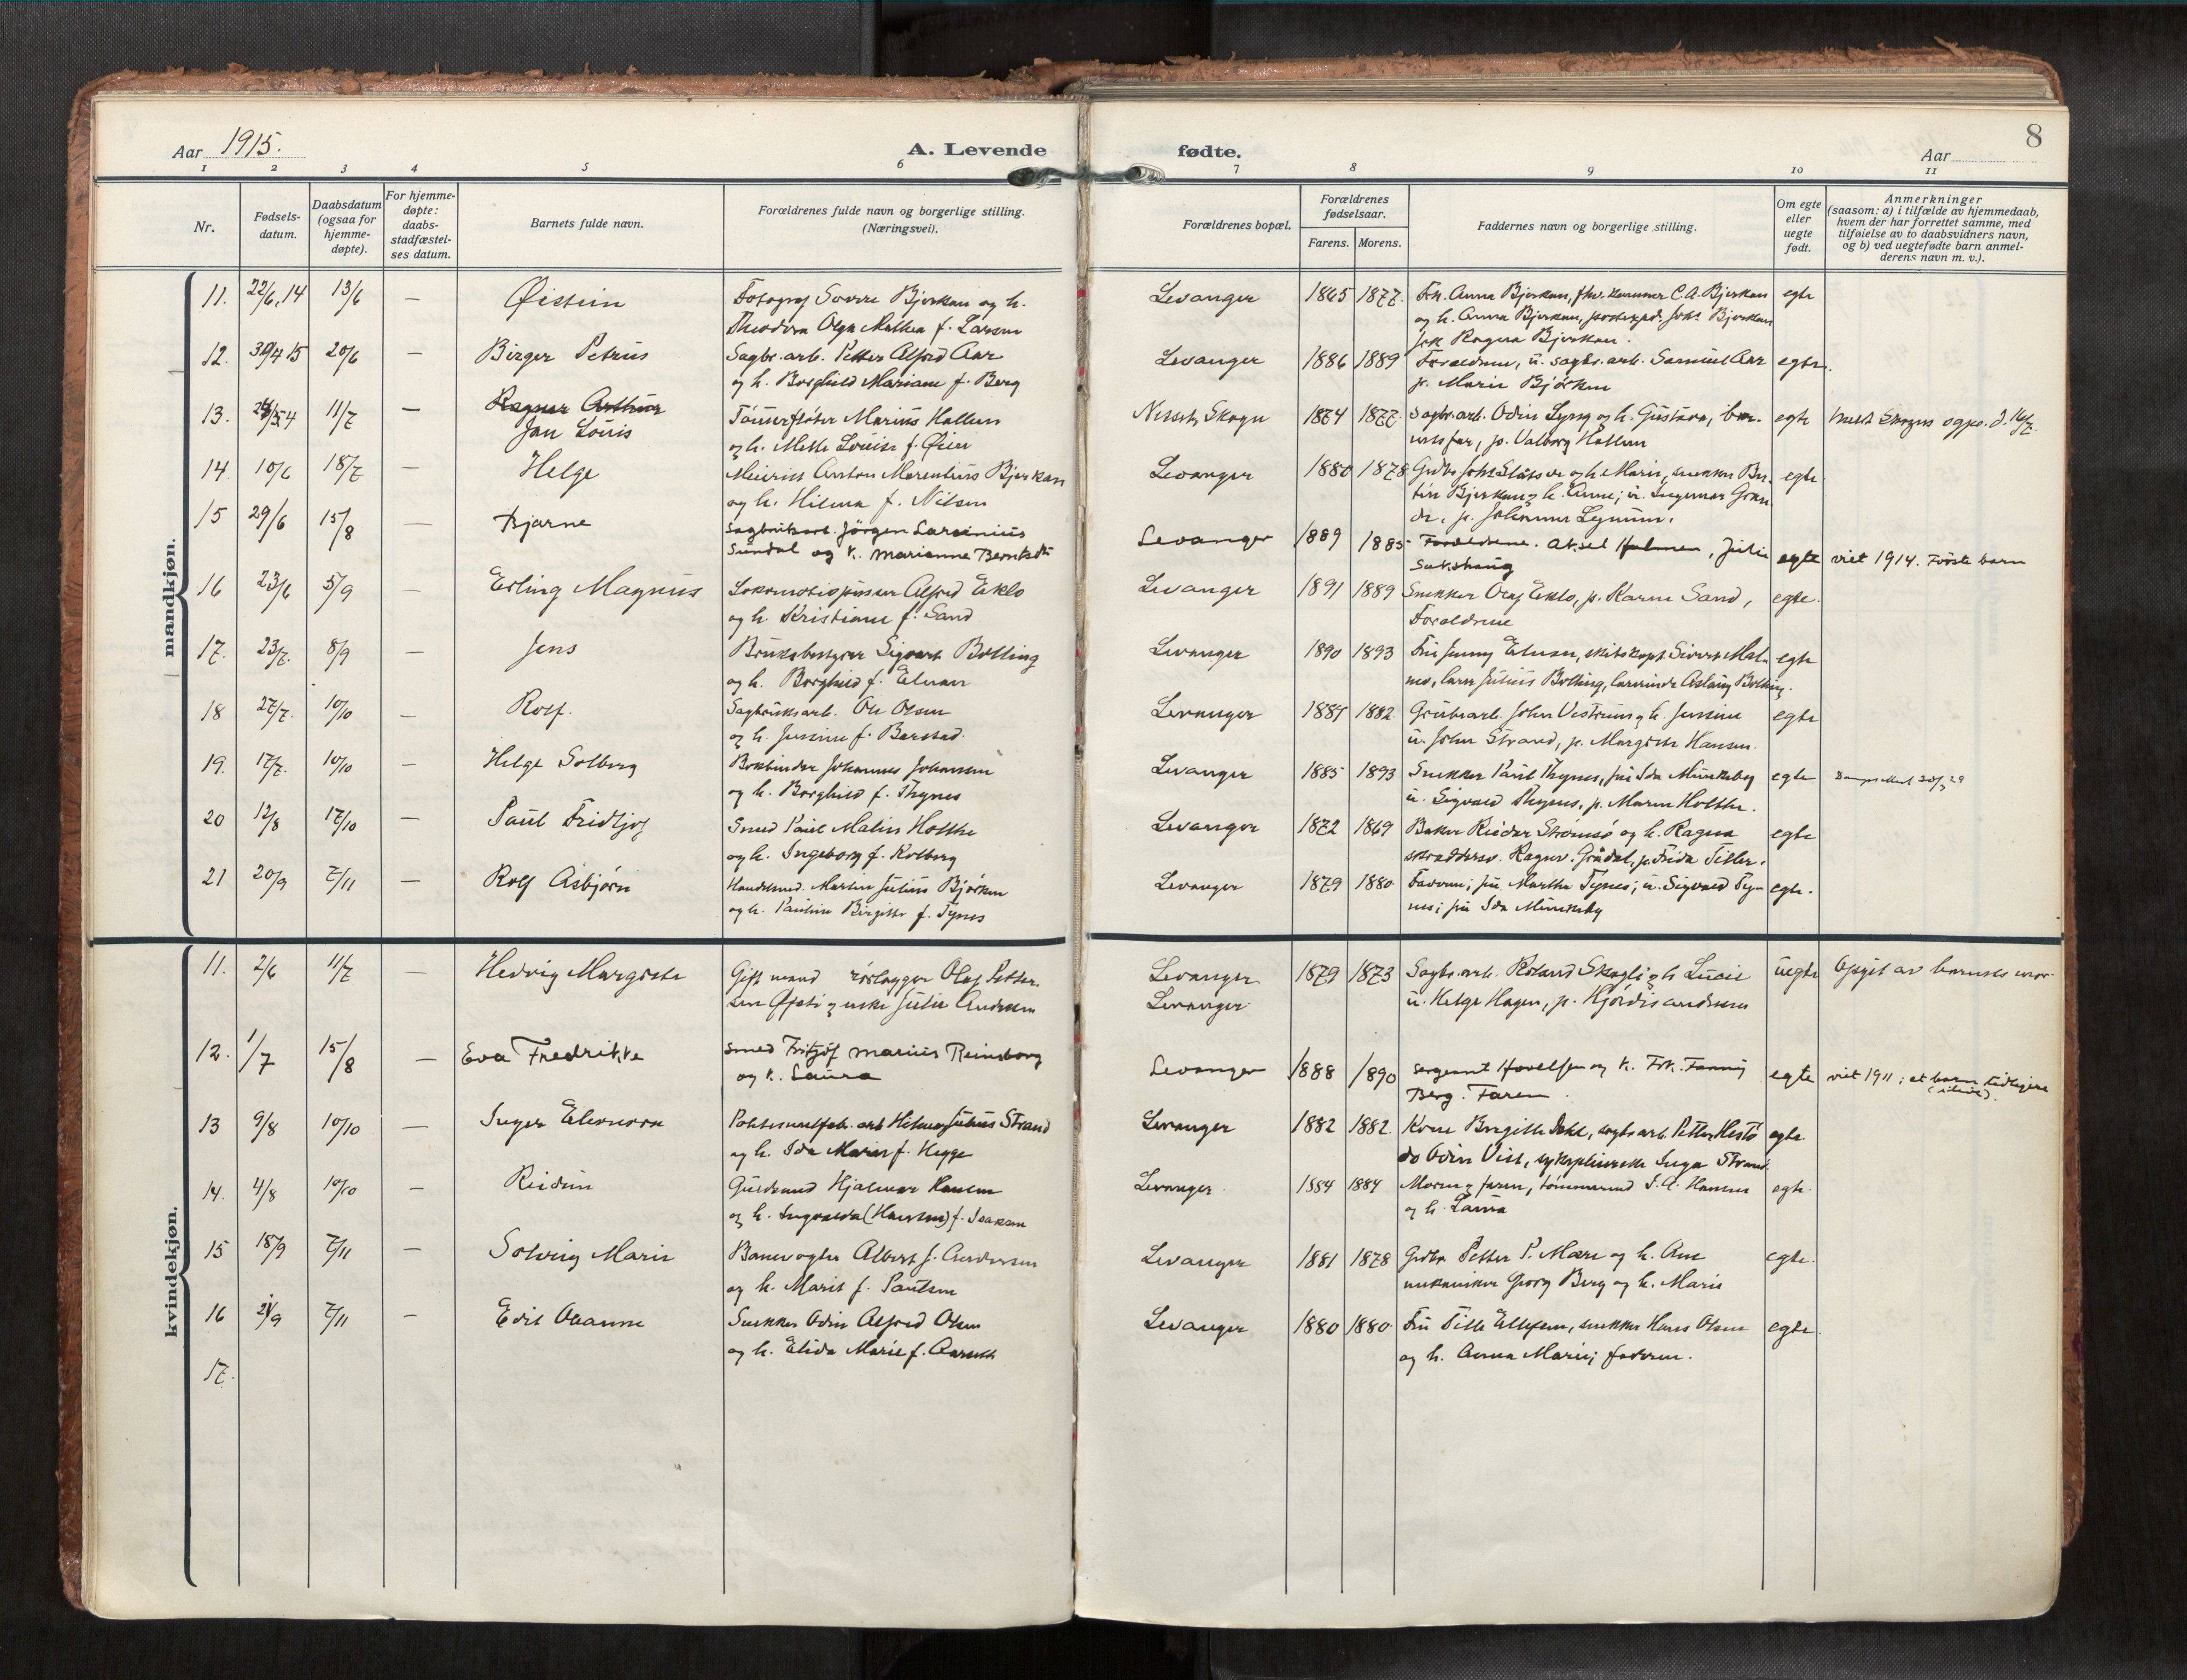 Aar 1915.
A. Levende
fødte.
8
Aar
1 2 3 4 5 6 7 8 9 10 11
Nr.
Fødsels-
datum.
Daabsdatum
(ogsaa for
hjemme-
døpte).
For hjemme-
døpte:
daabs-
stadfæstel-
ses datum.
Barnets fulde navn.
Forældrenes fulde navn og borgerlige stilling.
(Næringsvei).
Forældrenes bopæl.
Forældrenes
fødselsaar.
Farens. Morens.
Faddernes navn og borgerlige stilling.
Om egte
eller
uegte
født.
Anmerkninger
(saasom: a) i tilfælde av hjemmedaab,
hvem der har forrettet samme, med
tilføielse av to daabsvidners navn,
og b) ved uegtefødte barn anmel-
derens navn m. v.).
mandkjøn.
11. 22/6,14 13/6 — Øistein Fotograf Sverre Bjerkan og h. Levanger 1865 1877. Frk. Anna Bjerkan, C A. Bjerkan egte
Theodora Olga Mathea f. Larsen og h. Anna Bjerkan, Johs Bjerkan
frk Ragna Bjerkan.
12. 30/4 15 20/6 — Birger Petrus Sagbr.arb. Petter Alfred Aar Levanger 1886 1889 Forældrene, u. sagbr.arb. Samuel Aar egte.
og h. Borghild Mariane f. Berg p. Marie Bjørken
13. 11/7 — Ragnar Arthur Tømmerfløter Marius Hallem Skogn 1874 1877 Sagbr.arb. Odin Lyng og h. Gustava, egte
Jan Louis og h. Mette Louise f. Øien p. Valborg Hallem
14. 10/6 18/7 — Helge Meierist Anton Marentius Bjerkan Levanger 1880 1878 Grdbr. Johs og h. Marie, snekker egte
og h. Hilma f. Nilsen Bjerkan og h. Anne; u. Ingemar
p. Johanna Lynum.
15 29/6 15/8 — Bjarne Sagbruksarb. Jörgen Laurinius Levanger 1889 1885 Forældrene. Aksel Holmen, Julie egte viet 1914. Første barn
Sundal og k. Marianne Sakshaug
16 23/6 5/9 — Erling Magnus Lokomotivpusser Alfred Eklo Levanger 1891 1889 Snekker Olaf Eklo, p. Karen Sand, egte.
og h. Kristiane f. Sand Forældrene
17. 23/7. 8/9 — Jens Bruksbestyrer Sigvart Bolling Levanger 1890 1893 Fru Jenny Elnan, skibskapt. Sivert Malmo, egte
og h. Borghild f. Elnan Julius Bolling, Aslaug Bolling.
18 27/7. 10/10 — Rolf. Sagbruksarb. Ole Olsen Levanger 1881 1882 John Vestrum og h. Jensine egte
og h. Jensine f. Barstad. u. John Strand, p. Margrete Hansen.
19. 17/7. 10/10 — Helge Solberg Bokbinder Johannes Johansen Levanger 1885 1893 Snekker Paul Thynes, fru Ida Munkeby egte
og h. Borghild f. Thynes u. Sigvald Thynes, p. Maren Holthe.
20 12/8 17/10 — Paul Fridtjof Smed Paul Matin Holthe Levanger 1872 1869 Baker Reidar Strømsø og h. Ragna egte
og h. Ingeborg f. Kolberg skraddersv. Ragnv. Grådal, p. Frida Tiller.
21 20/9 7/11 — Rolf Asbjørn Handelsmd. Martin Julius Bjørken Levanger 1879 1880 Faderen; fru Marthe Tynes; u. Sigvald Ty- egte.
og h. Pauline Birgitte f. Tynes nes; fru Ida Munkeby
kvindekjøn.
11. 2/6 11/7 — Hedvig Margrete Gift mand rørlægger Olaf Petter- Levanger 1879 1873 Sagbr.arb. Roland Skogli og h. Lucie uegte Opgit av barnets mor
sen og enke Julie Andresen Levanger u. Helge Hagen, p. Hjørdis Andresen
12. 1/7 15/8 — Eva Fredrikke Smed Fritjof Marius Reinsborg Levanger 1888 1890 Sergeant og k. Frk. Fanny egte viet 1911; et barn tidligere
og k. Laura Berg. Faren.
13 9/8 10/10 — Inger Eleonora Hilmar Julius Strand Levanger 1882 1882. Kone Birgitte sagbr.arb. Petter egte.
og h. Ida Marie f. Hegge do Odin Vist, Inga Strand
14. 4/8 10/10 — Reidun Guldsmed Hjalmar Hansen Levanger 1884 1884 Moren og faren, tømmermd. J. A. Hansen egte.
og h. Ingvalda (Hansen) f. Isaksen og h. Laura
15 18/9 7/11 — Solveig Marie Banevogter Albert J. Andersen Levanger 1881 1878 Grdbr Petter P. Mære og h. Ane egte.
og h. Marit f. Paulsen mekaniker Georg Berg og h. Marie
16 21/9 7/11 — Edit Oleanne Snekker Odin Alfred Olsen Levanger 1880 1880 Fru Tille Ellefsen, snekker Hans Olsen egte.
og h. Elida Marie f. Aarseth og h. Anna Marie; faderen.
17.